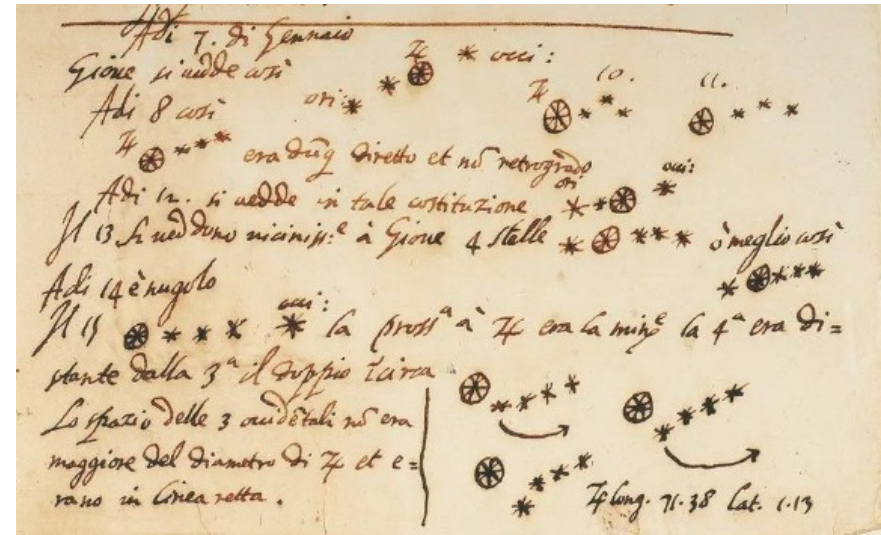 Adi 7. di Gennaio
Gioue si uedde così ori: ♃ occi:
Adi 8 così ♃ 10. 11.
♃ era dūq diretto et nō retrogrado
Adi 12. si uedde in tale costituzione ori occi:
Il 13 si ueddono viciniss:e à Gioue 4 stelle ò meglio così
Adi 14 è nugolo
Il 15 occi: la prossa à ♃ era la mine la 4a era di=
stante dalla 3a il doppio circa
Lo spazio delle 3 occidētali nō era
maggiore del diametro di ♃ et e=
rano in linea retta.
♃ long. 71.38 lat. 1.13